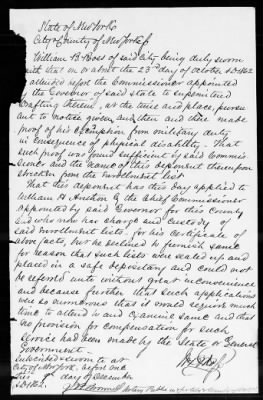 State of New York
City & County of New York ss.
William B. Ross of said City being duly sworn
saith that on or about the 23rd day of October AD 1862
he attended before the Commissioner appointed
by the Governor of said state to superintend
Drafting therein, at the time and place, pursu
ant to notice given, and then and there made
proof of his exemption from military duty
in consequence of physical disability. That
such proof was found sufficient by said Commis
sioner and the name of this deponent thereupon
stricken from the enrollment list.
That this deponent has this day applied to
William H. Anthon the Chief Commissioner
appointed by said Governor for this County
and who now has charge and custody of
said enrollment lists for his certificate of
above facts, but he declined to furnish same
for reason that such lists were sealed up and
placed in a safe depositary and could not
be referred unto without great inconvenience
and because further that such applications
were so numerous that it would require much
time to attend to and examine same and that
no provision for compensation for such
service had been made by the State or General
Government.
Subscribed & sworn to at
City of New York. before me
this day of December
AD 1862.
Notary Public